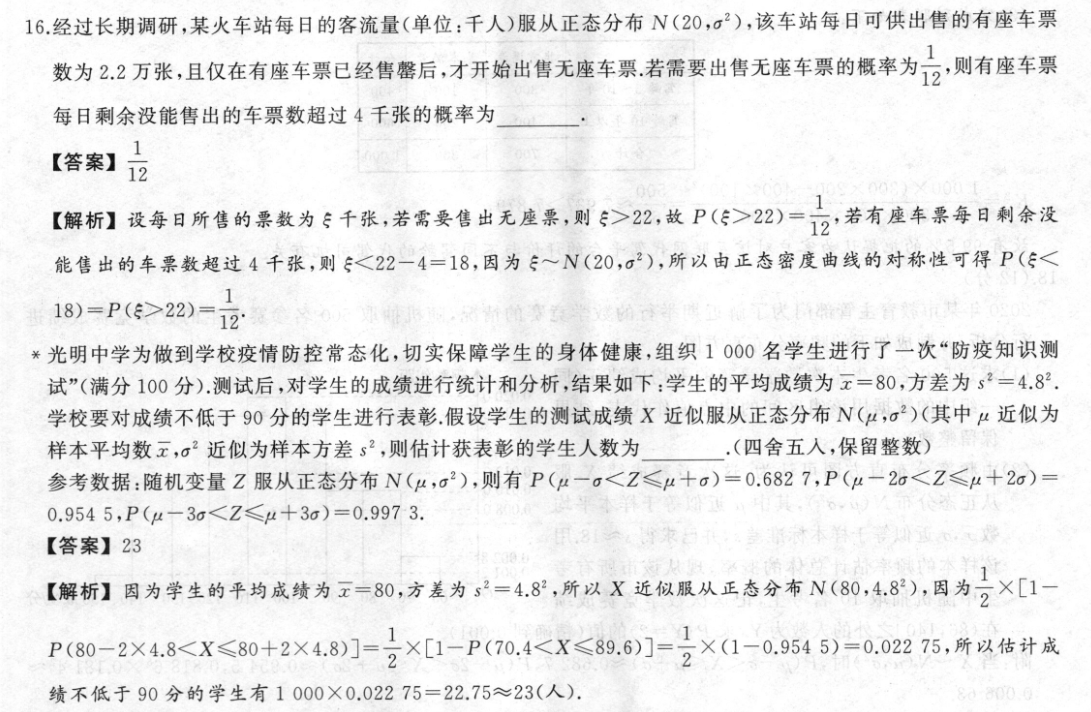 16.经过长期调研,某火车站每日的客流量(单位:千人)服从正态分布 N(20,σ²),该车站每日可供出售的有座车票
数为 2.2 万张,且仅在有座车票已经售罄后,才开始出售无座车票.若需要出售无座车票的概率为1/12,则有座车票
每日剩余没能售出的车票数超过 4 千张的概率为________.
【答案】1/12
【解析】设每日所售的票数为 ξ 千张,若需要售出无座票,则 ξ>22,故 P(ξ>22)=1/12,若有座车票每日剩余没
能售出的车票数超过 4 千张,则 ξ<22-4=18,因为 ξ~N(20,σ²),所以由正态密度曲线的对称性可得 P(ξ<
18)=P(ξ>22)=1/12.
* 光明中学为做到学校疫情防控常态化,切实保障学生的身体健康,组织 1 000 名学生进行了一次“防疫知识测
试”(满分 100 分).测试后,对学生的成绩进行统计和分析,结果如下:学生的平均成绩为 x̄=80,方差为 s²=4.8².
学校要对成绩不低于 90 分的学生进行表彰.假设学生的测试成绩 X 近似服从正态分布 N(μ,σ²)(其中 μ 近似为
样本平均数 x̄,σ² 近似为样本方差 s²,则估计获表彰的学生人数为________.(四舍五人,保留整数)
参考数据:随机变量 Z 服从正态分布 N(μ,σ²),则有 P(μ-σ<Z≤μ+σ)=0.682 7,P(μ-2σ<Z≤μ+2σ)=
0.954 5,P(μ-3σ<Z≤μ+3σ)=0.997 3.
【答案】23
【解析】因为学生的平均成绩为 x̄=80,方差为 s²=4.8²,所以 X 近似服从正态分布 N(80,4.8²),因为1/2×[1-
P(80-2×4.8<X≤80+2×4.8)]=1/2×[1-P(70.4<X≤89.6)]=1/2×(1-0.954 5)=0.022 75,所以估计成
绩不低于 90 分的学生有 1 000×0.022 75=22.75≈23(人).